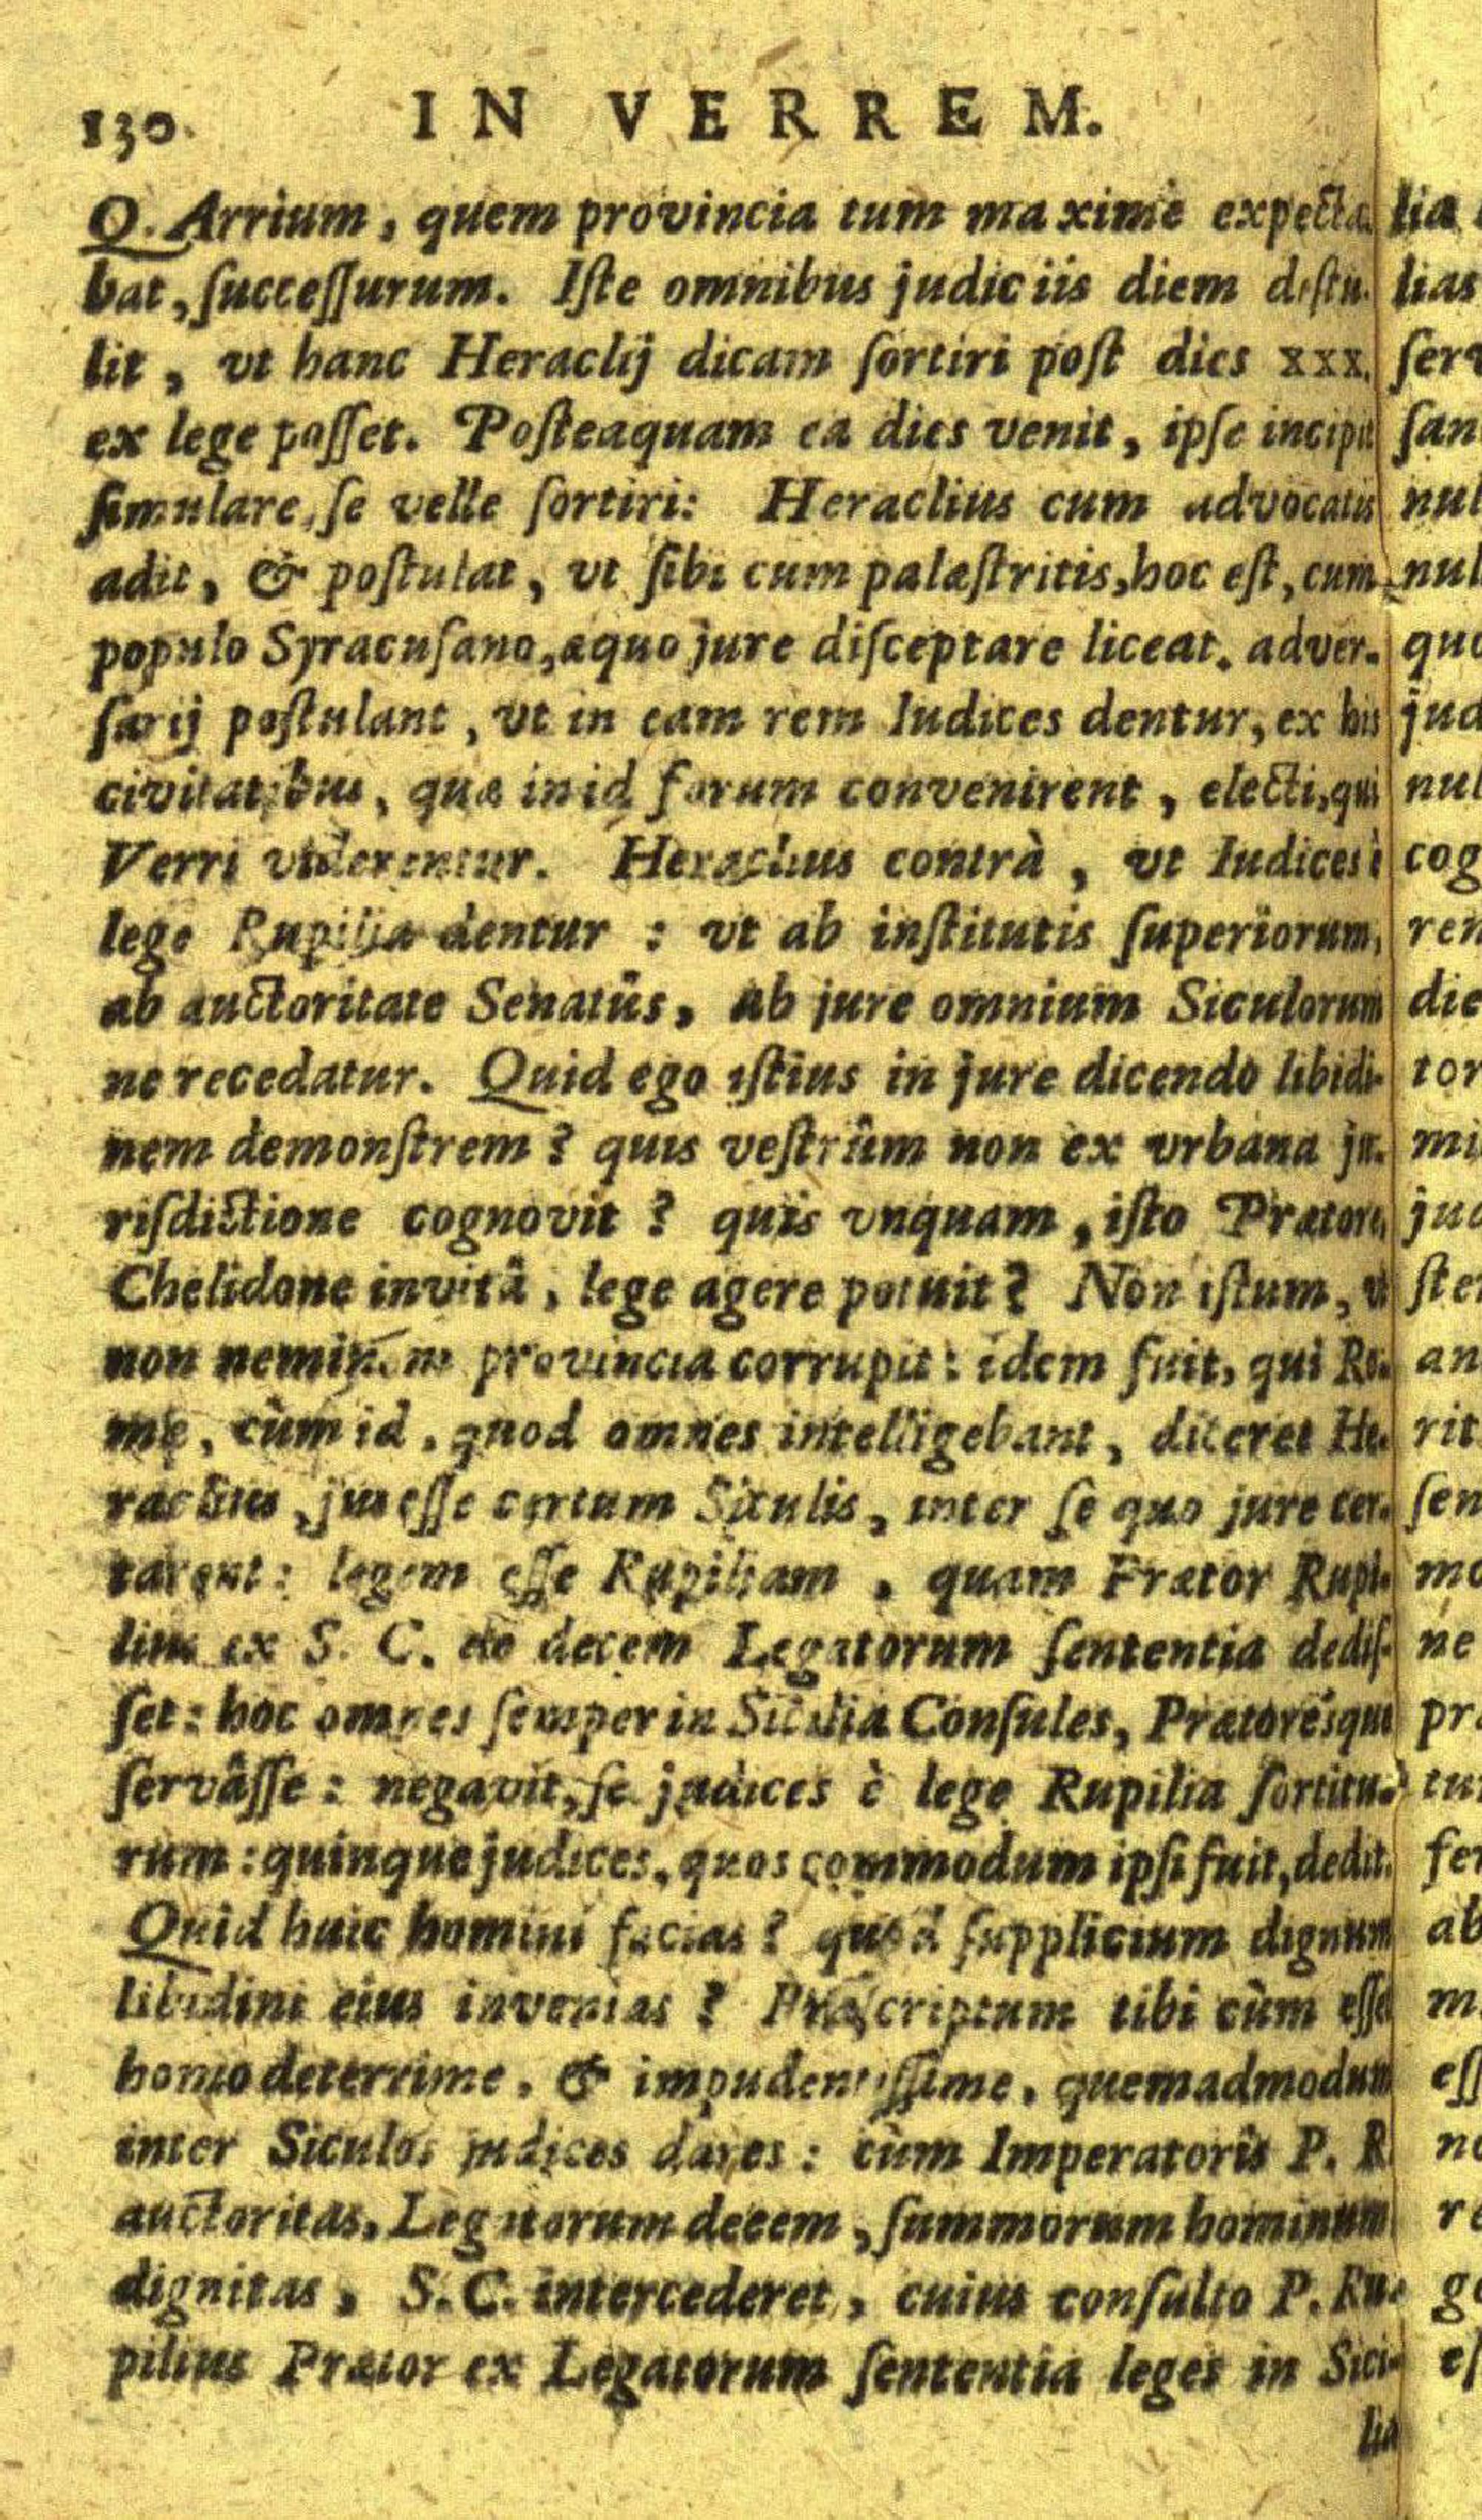 130. IN VERREM.
Q. Arrium, quem provincia tum maximè expecta-
bat, ſucceſſurum. Iſte omnibus judiciis diem diſtu-
lit, vt hanc Heraclij dicam ſortiri poſt dies xxx.
ex lege poſſet. Poſteaquam ea dies venit, ipſe incipit
ſimulare, ſe velle ſortiri: Heraclius cum advocatis
adit, & poſtulat, vt ſibi cum palæſtritis, hoc eſt, cum
populo Syracuſano, æquo jure diſceptare liceat. adver-
ſarij poſtulant, vt in eam rem Iudices dentur, ex his
civitatibus, quæ in id forum convenirent, electi, qui
Verri viderentur. Heraclius contrà, vt Iudices è
lege Rupilia dentur: vt ab inſtitutis ſuperiorum,
ab auctoritate Senatûs, ab jure omnium Siculorum
ne recedatur. Quid ego iſtius in jure dicendo libidi-
nem demonſtrem? quis veſtrûm non ex vrbana ju-
riſdictione cognovit? quis vnquam, iſto Prætore,
Chelidone invitâ, lege agere potuit? Non iſtum, vt
non neminem provincia corrupit: idem fuit, qui Ro-
mæ, cùm id, quod omnes intelligebant, diceret He-
raclius, jus eſſe certum Siculis, inter ſe quo jure cer-
tarent: legem eſſe Rupiliam, quam Prætor Rupi-
lius ex S. C. de decem Legatorum ſententia dediſ-
ſet: hoc omnes ſemper in Sicilia Conſules, Prætoréſque
ſervâſſe: negavit, ſe judices è lege Rupilia ſortitu-
rum: quinque judices, quos commodum ipſi fuit, dedit.
Quid huic homini facias? quod ſupplicium dignum
libidini eius invenias? Præſcriptum tibi cùm eſſet
homo deterrime, & impudentiſſime, quemadmodum
inter Siculos judices dares: cùm Imperatoris P. R.
auctoritas, Legatorum decem, ſummorum hominum
dignitas, S. C. intercederet, cuius conſulto P. Ru-
pilius Prætor ex Legatorum ſententia leges in Sici-
lia